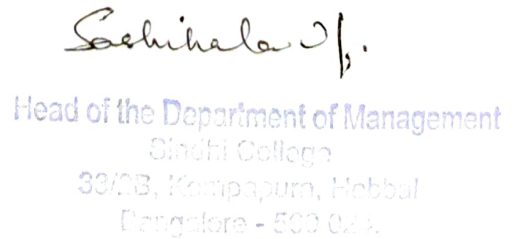 Sashikala V.
Head of the Department of Management
Sindhi College
33/2B, Kempapura, Hebbal
Bangalore - 560 024.